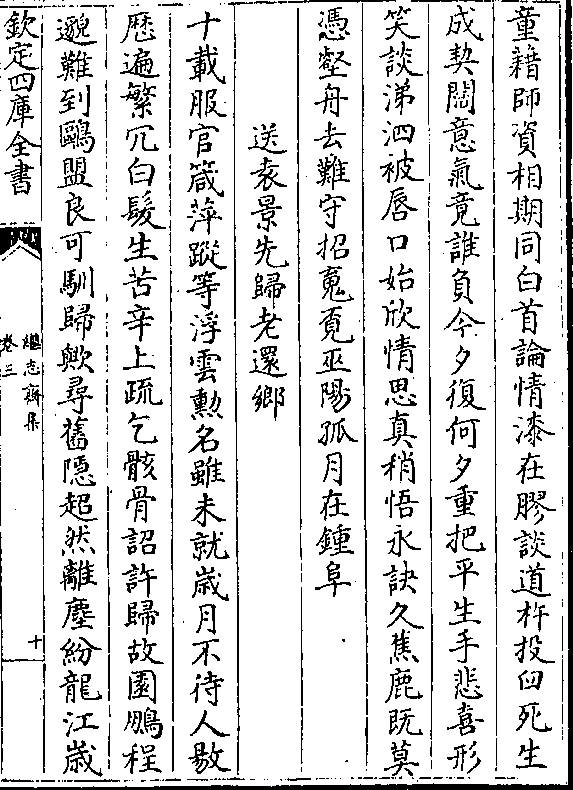 童藉師資相期同白首論情漆在膠談道杵投臼死生
成契闊意氣竟誰負今夕復何夕重把平生手悲喜形
笑談涕泗被唇口始欣情思真稍悟永訣久蕉鹿既莫
憑壑舟去難守招䰟覔巫陽孤月在鍾阜
送袁景先歸老還鄉
十載服官箴萍蹤等浮雲勲名雖未就歳月不待人敭
歴遍繁冗白髮生苦辛上疏乞骸骨詔許歸故園鵬程
邈難到鷗盟良可馴歸歟尋舊隠超然離塵紛龍江歳
欽定四庫全書
繼志齋集
卷三
十